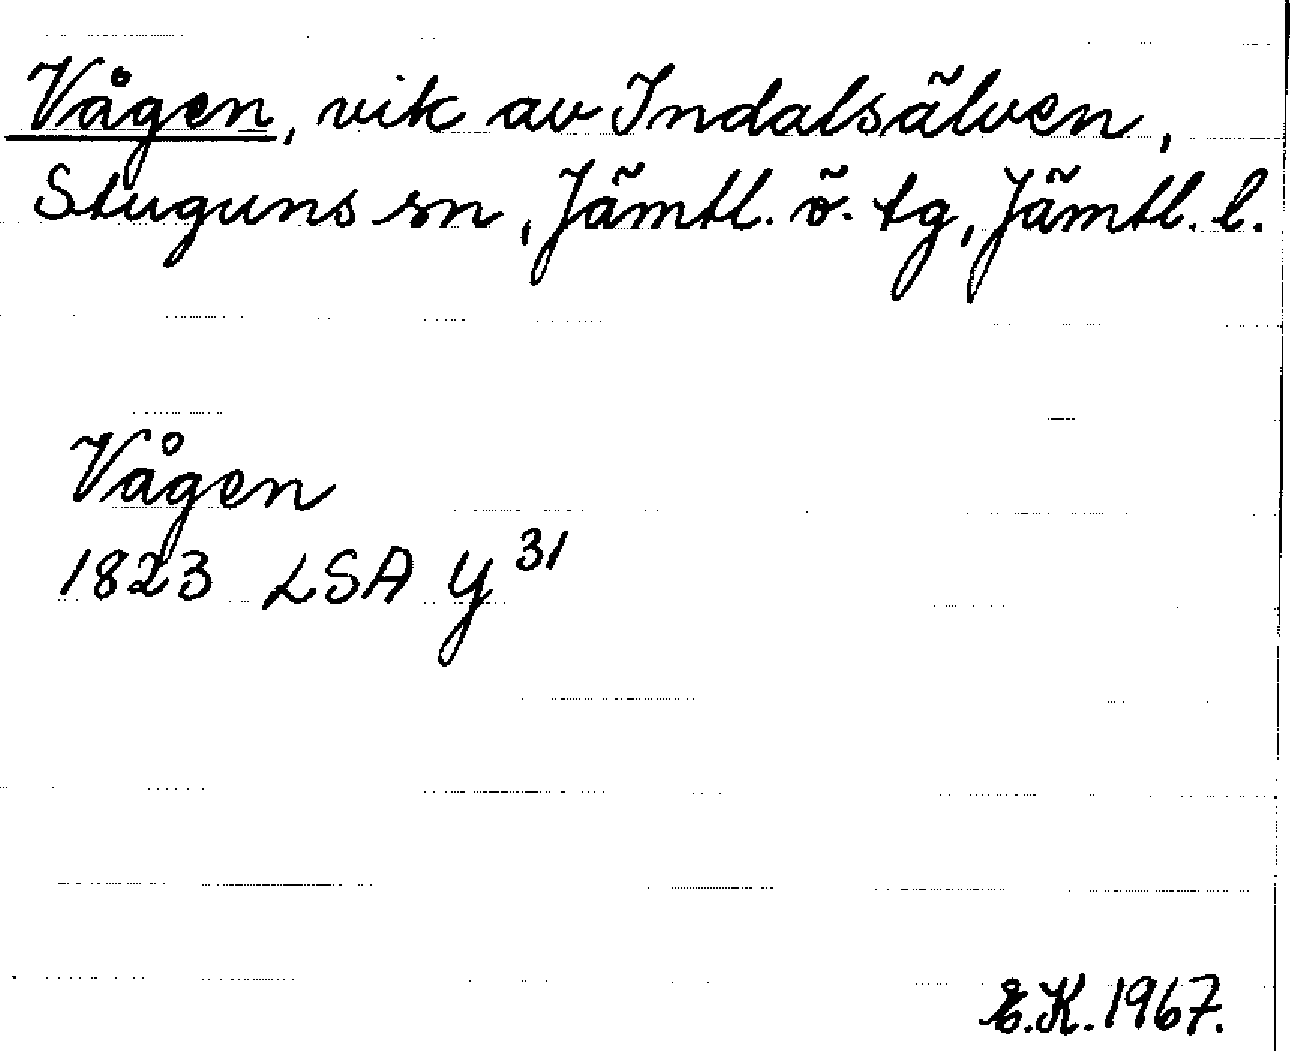 Vågen, vik av Indalsälven,
Stuguns sn, Jämtl. ö. tg, Jämtl. l.
Vågen
1823 LSA Y 31
E.K. 1967.